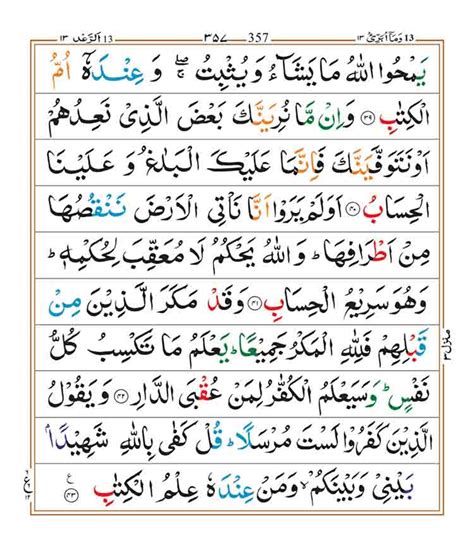 وما ابرئ ١٣ 13 357 ٣٥٧ الرعد ١٣ 13
يَمْحُوا اللّٰهُ مَا يَشَآءُ وَيُثْبِتُ ۖۚ وَ عِنْدَهٗۤ اُمُّ
الْكِتٰبِ ﴿۳۹﴾ وَاِنْ مَّا نُرِيَنَّكَ بَعْضَ الَّذِىْ نَعِدُهُمْ
اَوْ نَتَوَفَّيَنَّكَ فَاِنَّمَا عَلَيْكَ الْبَلٰغُ وَ عَلَيْنَا
الْحِسَابُ ﴿۴۰﴾ اَوَلَمْ يَرَوْا اَنَّا نَاْتِى الْاَرْضَ نَنْقُصُهَا
مِنْ اَطْرَافِهَا ؕ وَاللّٰهُ يَحْكُمُ لَا مُعَقِّبَ لِحُكْمِهٖ ؕ
وَهُوَ سَرِيْعُ الْحِسَابِ ﴿۴۱﴾ وَقَدْ مَكَرَ الَّذِيْنَ مِنْ
قَبْلِهِمْ فَلِلّٰهِ الْمَكْرُ جَمِيْعًا ؕ يَعْلَمُ مَا تَكْسِبُ كُلُّ
نَفْسٍ ؕ وَسَيَعْلَمُ الْكُفّٰرُ لِمَنْ عُقْبَى الدَّارِ ﴿۴۲﴾ وَ يَقُوْلُ
الَّذِيْنَ كَفَرُوْا لَسْتَ مُرْسَلًا ؕ قُلْ كَفٰى بِاللّٰهِ شَهِيْدًۢا
بَيْنِىْ وَبَيْنَكُمْ ۙ وَمَنْ عِنْدَهٗ عِلْمُ الْكِتٰبِ ﴿۴۳﴾ ع
منزل ۳